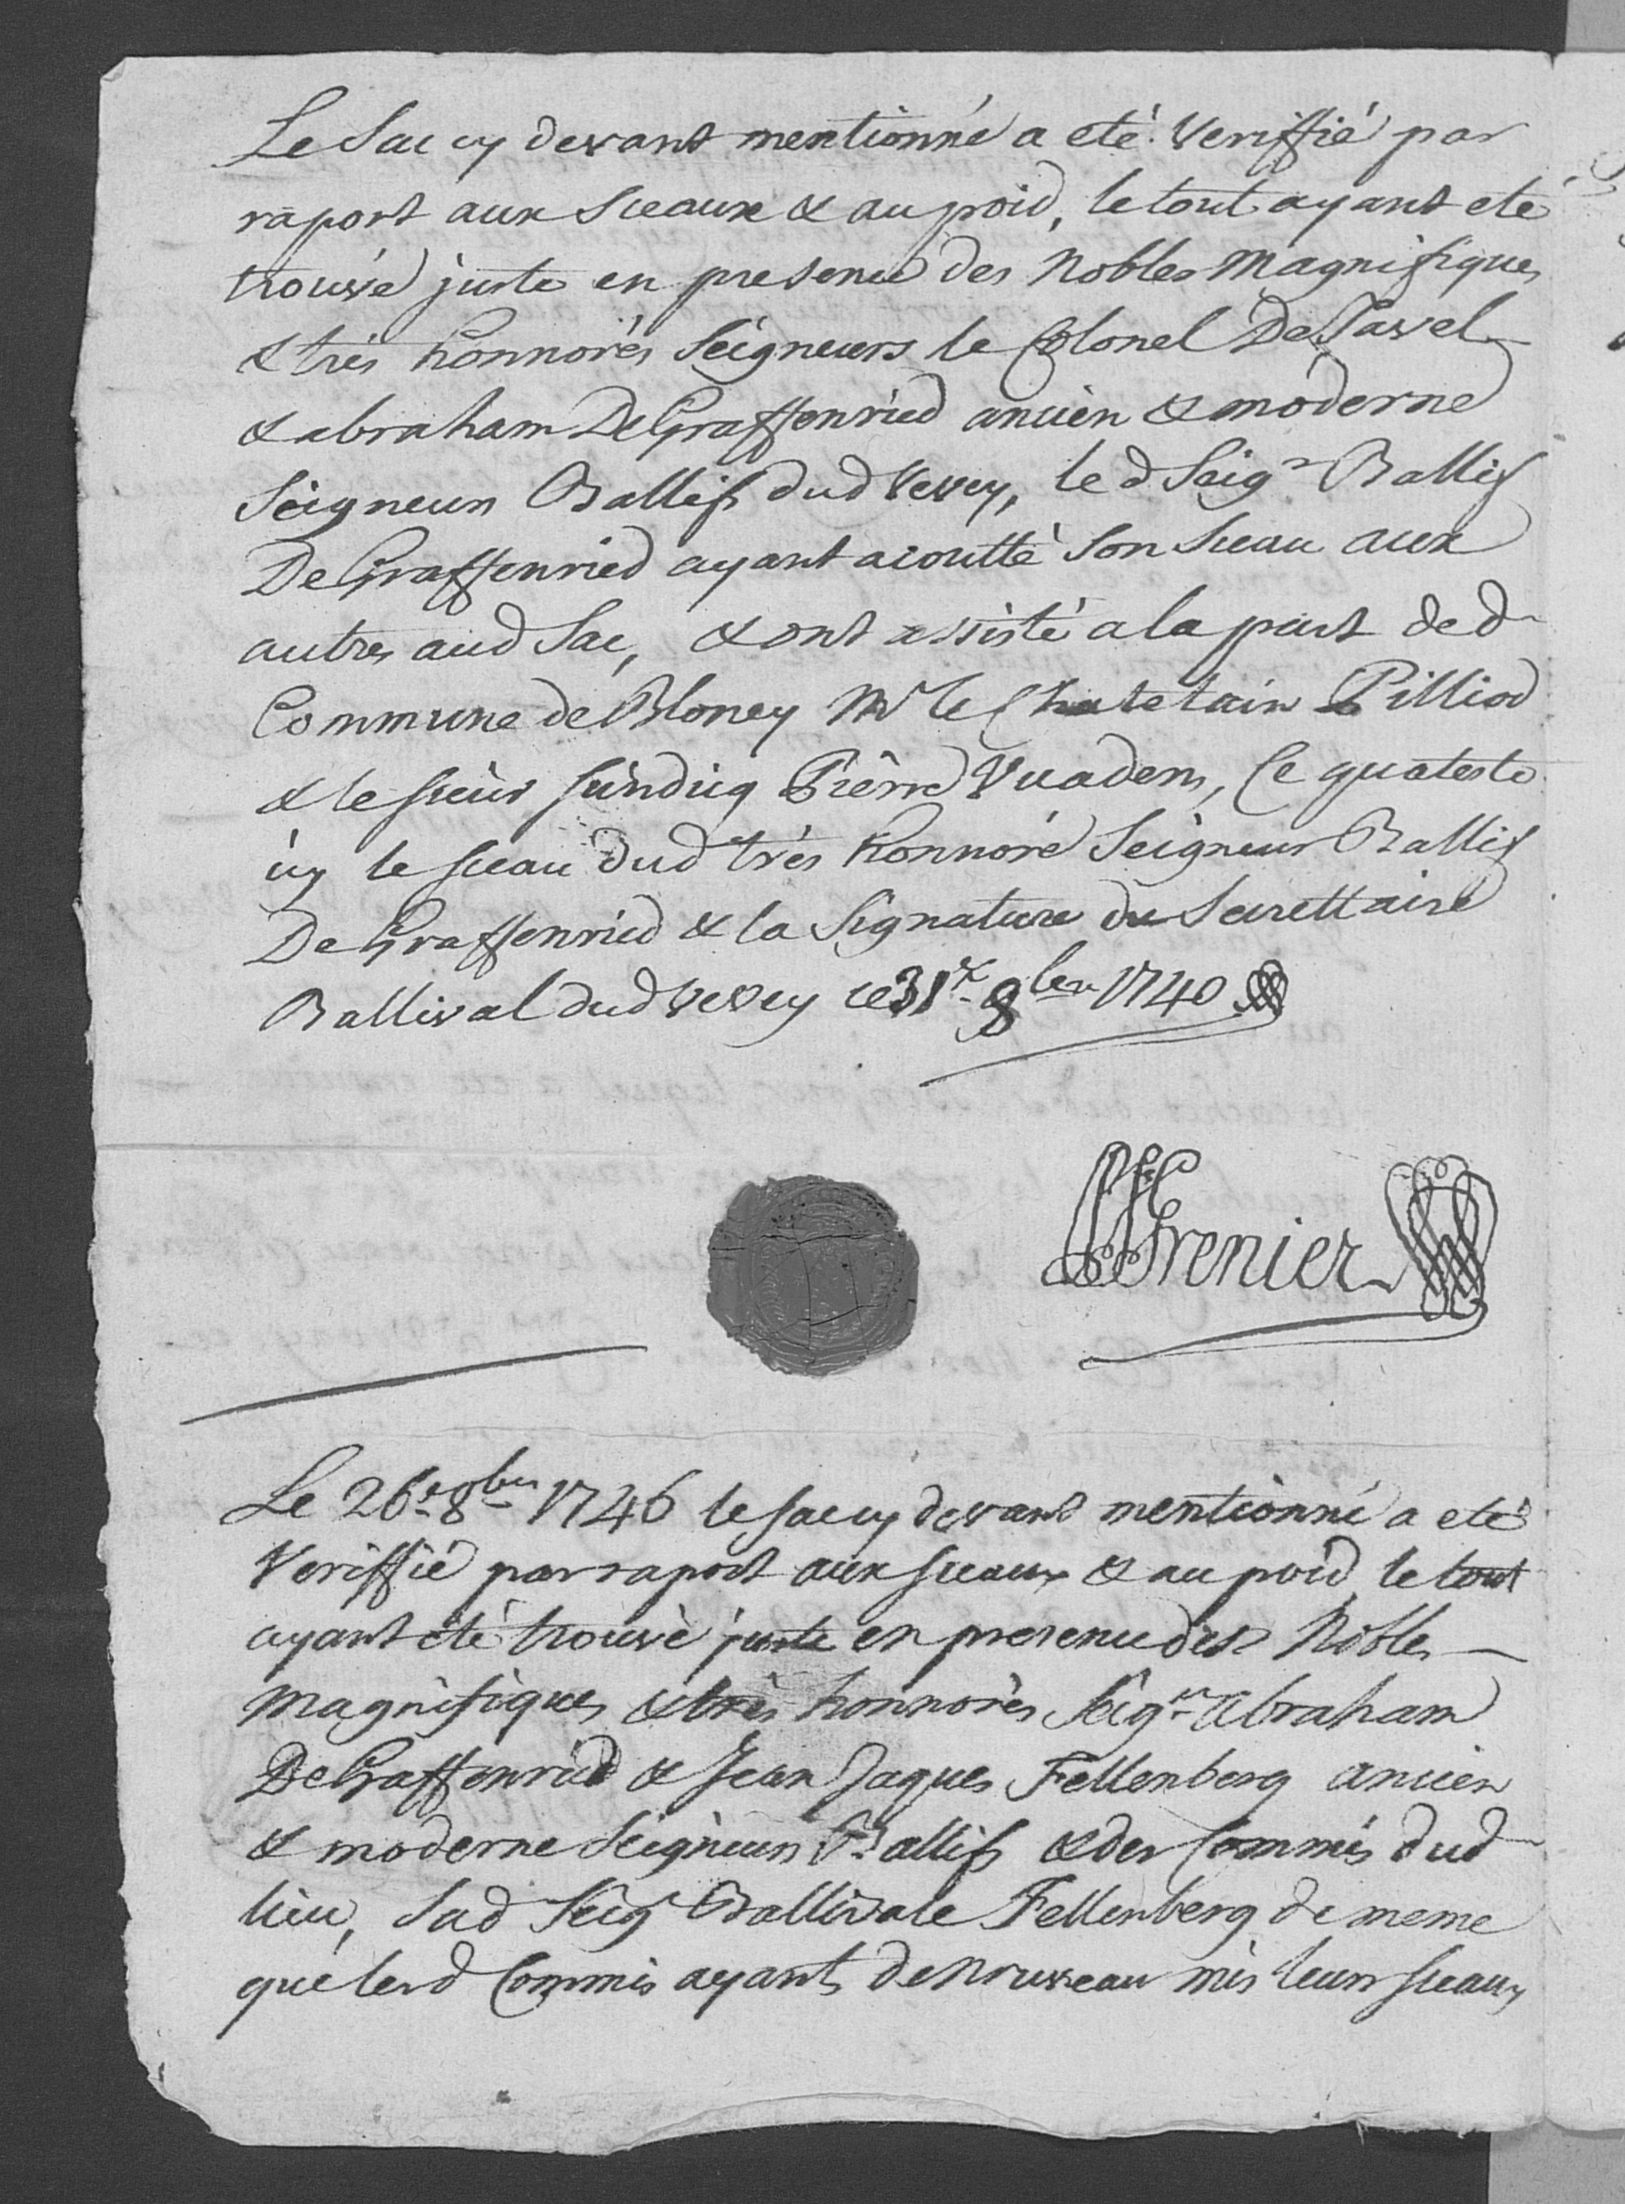 Le Sac cy devant mentionné a eté Veriffié par
raport aux sceaux & au poid, le tout ayant eté
trouvé juste en presence des Nobles Magnifiques
& très honnorés Seigneurs le Colonel De Tavel
& abraham DeGraffenried ancien & moderne
Seigneurs Ballifs dud Vevey, le d Seigr Ballif
DeGraffenried ayant acoutté son sceau aux
autres aud Sac, & ont assisté a la part de d
Commune de Bloney Mr le Chatelain Pilliod
& le sieur sindicq Pierre Vuadens, Ce quateste
icy le sceau dud très honnoré Seigneur Ballif
DeGraffenried & la Signature du Secrettaire
Ballival dud Vevey ce 31e 8bre 1740
Grenier
Le 26e 8bre 1746 le sac cy devant mentionné a eté
Veriffié par raport aux sceaux & au poid, le tout
ayant été trouvé juste en presence des Nobles
Magnifiques & très honnorés Seigrs Abraham
DeGraffenried & Jean Jaques Fellenberg ancien
& moderne Seigneurs Ballifs & des Commis dud
lieu, Sad Seigr Ballivale Fellenberg de meme
que lesd Commis ayants de nouveau mis leurs sceaux